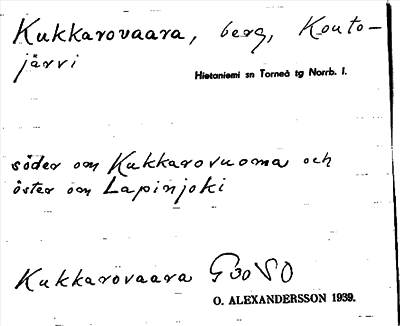 Kukkarovaara, berg, Kouto-
järvi
Hietaniemi sn Torneå tg Norrb. l.
söder om Kukkarovuoma och
öster om Lapinjoki
Kukkarovaara G30 SO
O. ALEXANDERSSON 1939.